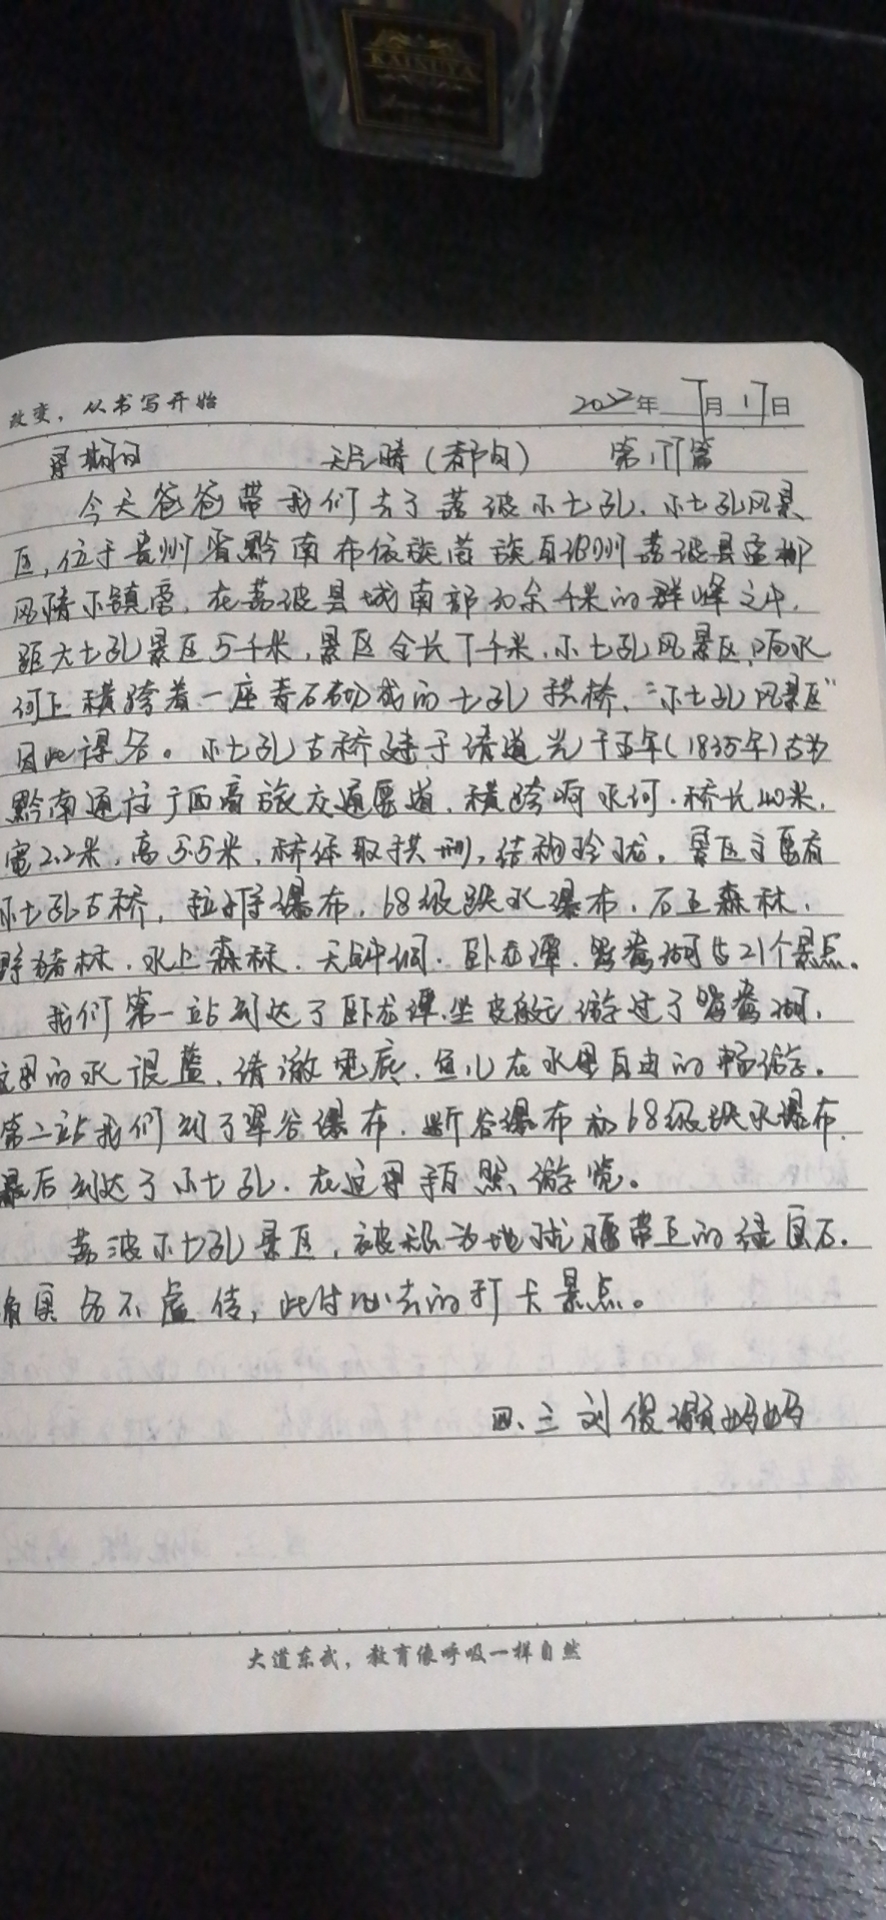 KAISUYA
改变，从书写开始
2022年 7月17日
星期日 天气晴（都匀） 第177篇
今天爸爸带我们去了荔波小七孔、小七孔风景
区，位于贵州省黔南布依族苗族自治州荔波县
风情小镇旁，在荔波县城南部30余千米的群峰之中，
距大七孔景区5千米，景区全长7千米，小七孔风景区，响水
河上横跨着一座青石砌成的七孔拱桥，“小七孔风景区”
因此得名。小七孔古桥建于清道光十五年（1835年）古为
黔南通往广西商旅交通要道，横跨响水河，桥长40米，
宽2.2米，高5.5米，桥体取拱形，结构玲珑。景区主要有
小七孔古桥，拉雅瀑布，68级跌水瀑布，石上森林，
野猪林，水上森林，天钟洞，卧龙潭，鸳鸯湖与21个景点。
我们第一站到达了卧龙潭，坐皮艇游过了鸳鸯湖，
这里的水很蓝，清澈见底，鱼儿在水里自由的畅游。
第二站我们到了翠谷瀑布，瀑布和68级跌水瀑布，
最后到达了小七孔，在这里拍照、游览。
荔波小七孔景区，被称为地球腰带上的绿宝石，
名不虚传，此生必去的打卡景点。
四、三 刘灏妈妈
大道东武，教育像呼吸一样自然